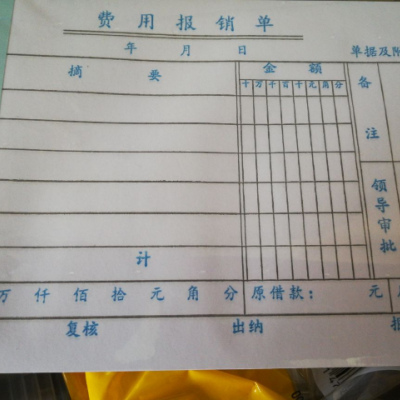 费用报销单
年 月 日 单据及附
摘 要 金 额 备注
十万千百十元角分
领导审批
计
万 仟 佰 拾 元 角 分 原借款: 元
复核 出纳 报